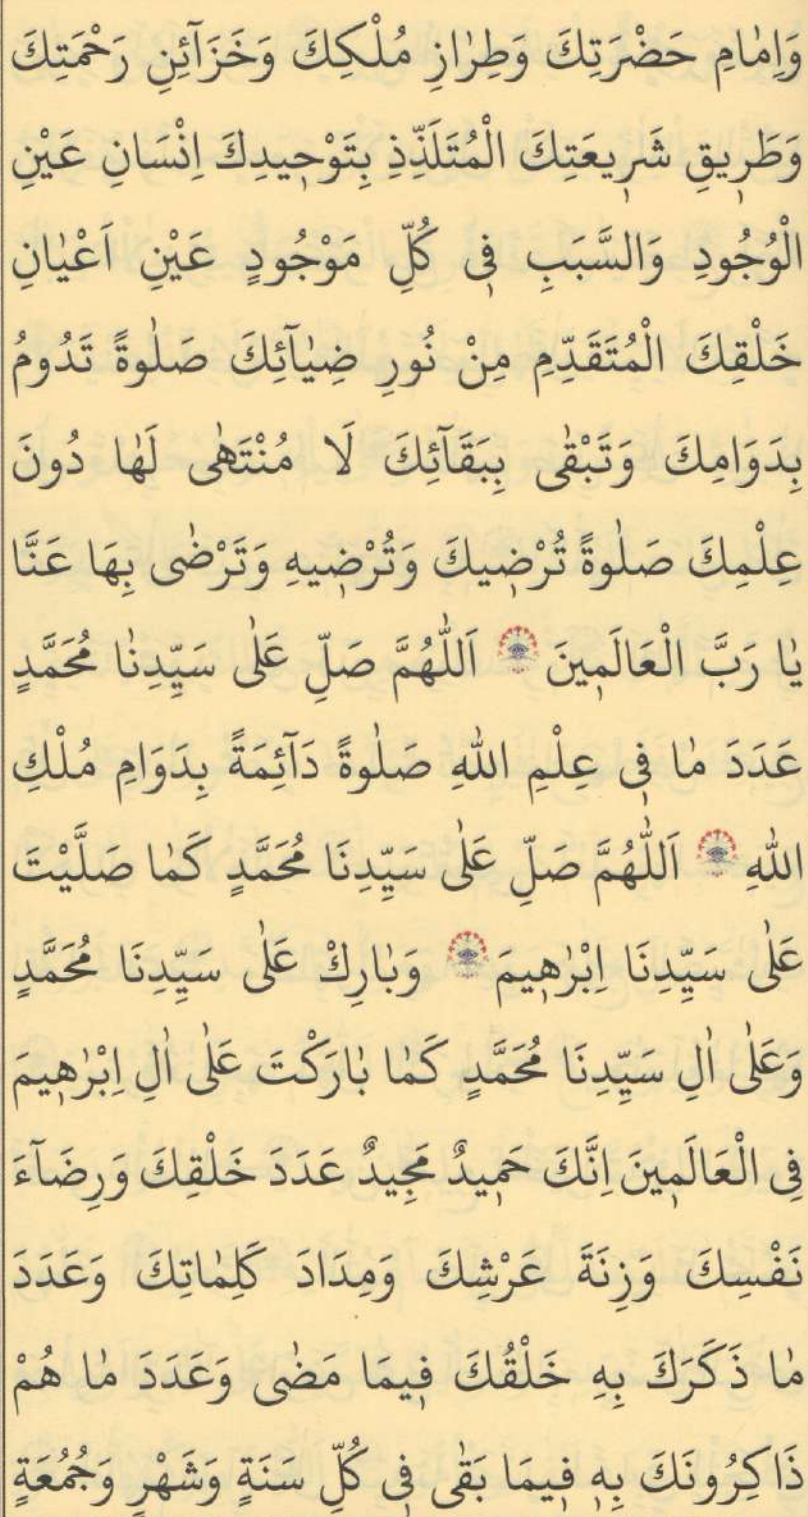 وَاِمٰامِ حَضْرَتِكَ وَطِرٰازِ مُلْكِكَ وَخَزَآئِنِ رَحْمَتِكَ
وَطَرٖيقِ شَرٖيعَتِكَ الْمُتَلَذِّذِ بِتَوْحٖيدِكَ اِنْسَانِ عَيْنِ
الْوُجُودِ وَالسَّبَبِ فٖى كُلِّ مَوْجُودٍ عَيْنِ اَعْيٰانِ
خَلْقِكَ الْمُتَقَدِّمِ مِنْ نُورِ ضِيٰآئِكَ صَلٰوةً تَدُومُ
بِدَوَامِكَ وَتَبْقٰى بِبَقَآئِكَ لَا مُنْتَهٰى لَهٰا دُونَ
عِلْمِكَ صَلٰوةً تُرْضٖيكَ وَتُرْضٖيهِ وَتَرْضٰى بِهَا عَنَّا
يٰا رَبَّ الْعَالَمٖينَ اَللّٰهُمَّ صَلِّ عَلٰى سَيِّدِنٰا مُحَمَّدٍ
عَدَدَ مٰا فٖى عِلْمِ اللّٰهِ صَلٰوةً دَآئِمَةً بِدَوَامِ مُلْكِ
اللّٰهِ اَللّٰهُمَّ صَلِّ عَلٰى سَيِّدِنَا مُحَمَّدٍ كَمٰا صَلَّيْتَ
عَلٰى سَيِّدِنَا اِبْرٰهٖيمَ وَبٰارِكْ عَلٰى سَيِّدِنَا مُحَمَّدٍ
وَعَلٰى اٰلِ سَيِّدِنَا مُحَمَّدٍ كَمٰا بٰارَكْتَ عَلٰى اٰلِ اِبْرٰهٖيمَ
فِى الْعَالَمٖينَ اِنَّكَ حَمٖيدٌ مَجٖيدٌ عَدَدَ خَلْقِكَ وَرِضَآءَ
نَفْسِكَ وَزِنَةَ عَرْشِكَ وَمِدَادَ كَلِمٰاتِكَ وَعَدَدَ
مٰا ذَكَرَكَ بِهِ خَلْقُكَ فٖيمَا مَضٰى وَعَدَدَ مٰا هُمْ
ذَاكِرُونَكَ بِهٖ فٖيمَا بَقٰى فٖى كُلِّ سَنَةٍ وَشَهْرٍ وَجُمُعَةٍ